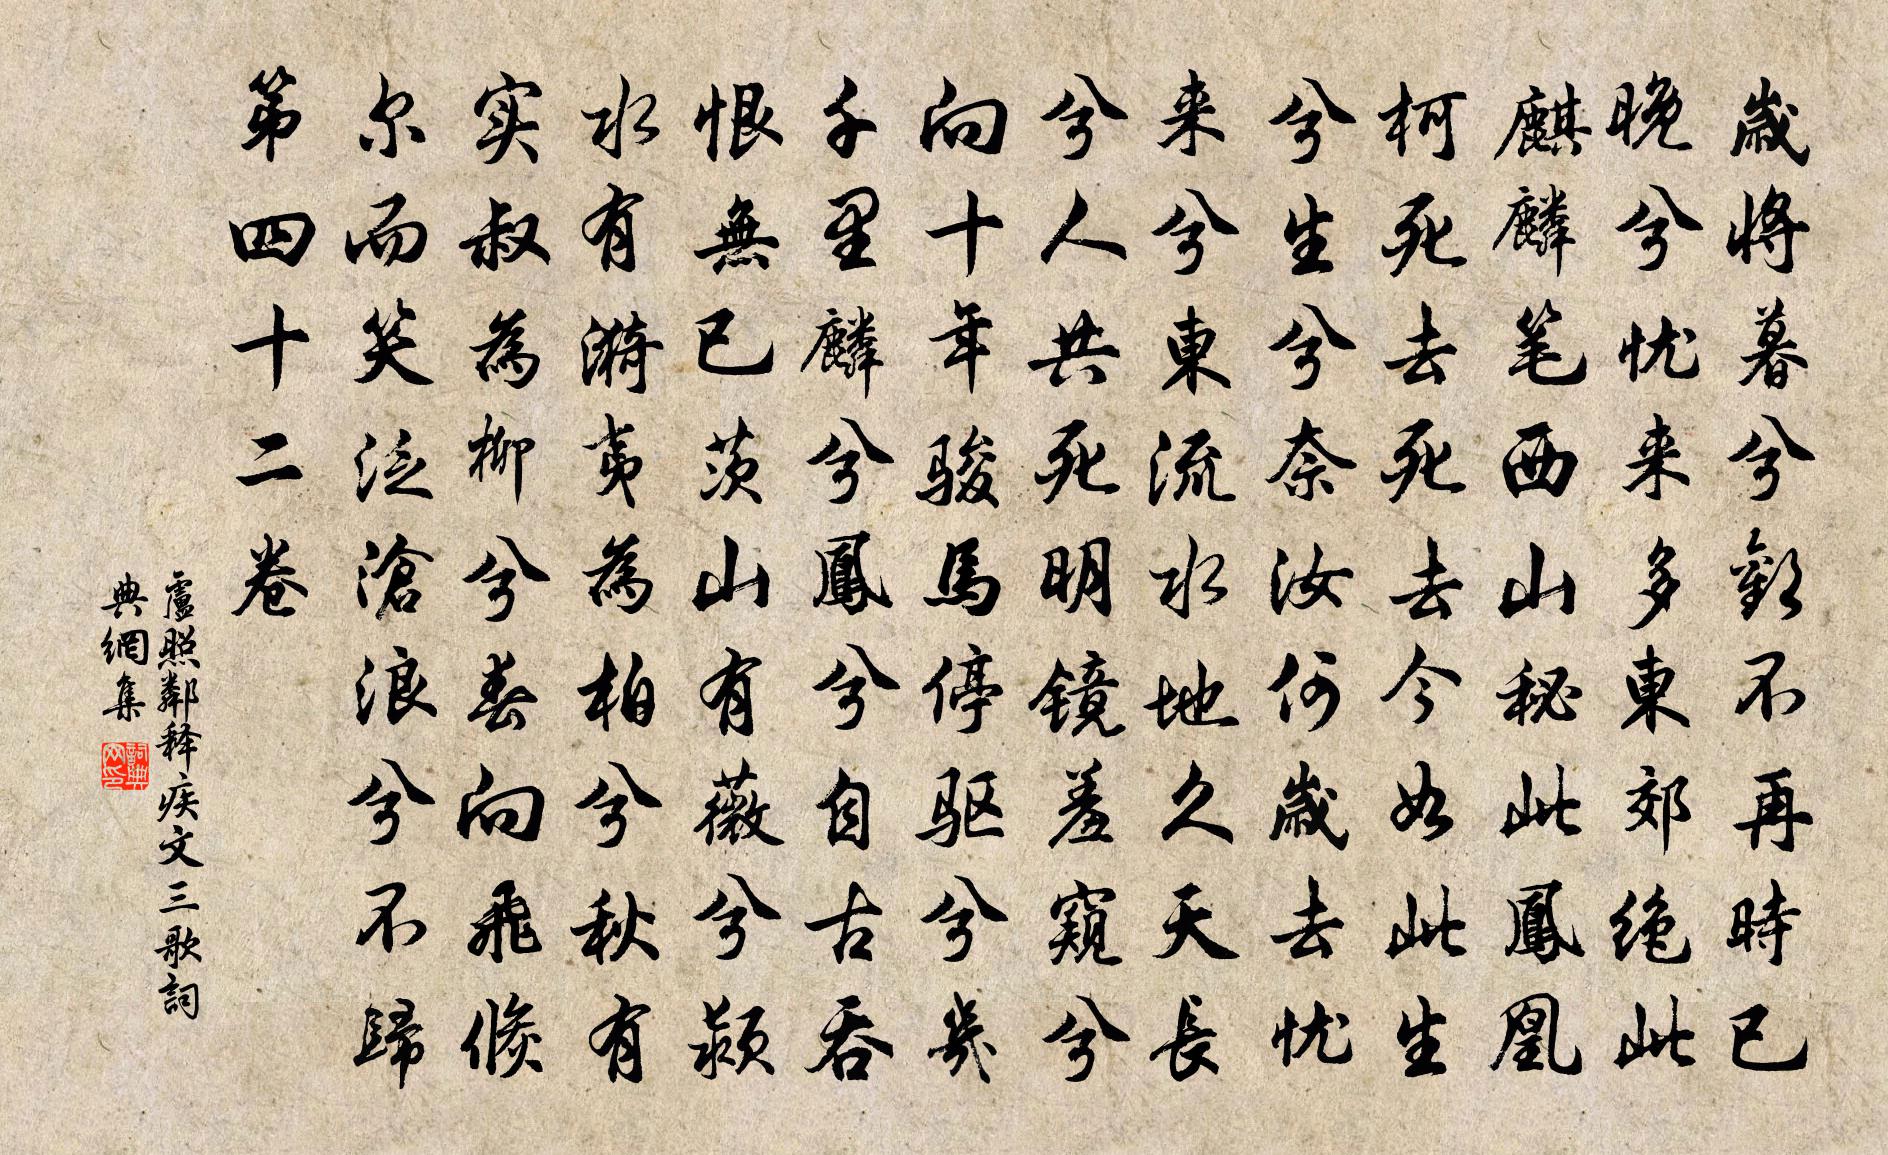 歲将暮兮歡不再時已
晚兮忧来多東郊绝此
麒麟笔西山秘此鳳凰
柯死去死去今如此生
兮生兮奈汝何歲去忧
来兮東流水地久天長
兮人共死明镜羞窺兮
向十年骏馬停驱兮幾
千里麟兮鳳兮自古吞
恨無已茨山有薇兮颍
水有漪夷為柏兮秋有
实叔為柳兮春向飛倏
尔而笑泛滄浪兮不歸
第四十二卷
盧照鄰释疾文三歌詞
典網集
詞典
网印